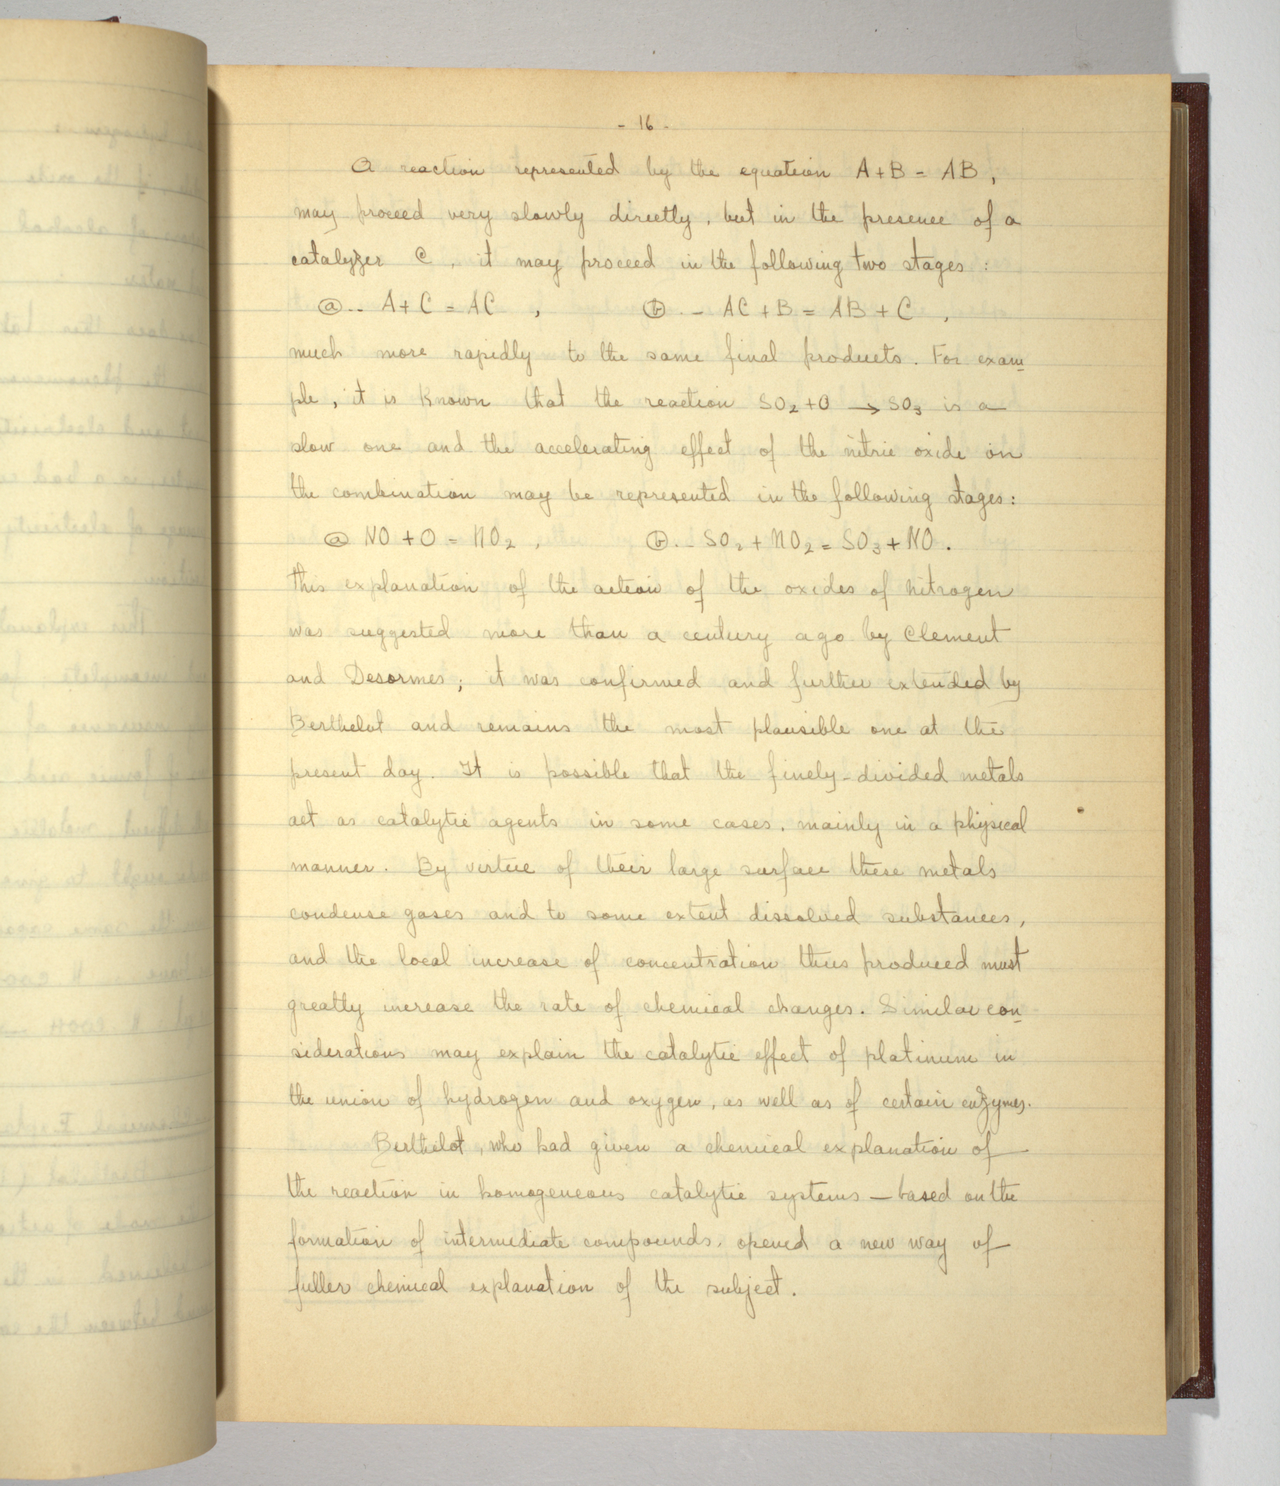 - 16 -
A reaction represented by the equation A+B = AB,
may proceed very slowly directly, but in the presence of a
catalyzer C, it may proceed in the following two stages:
ⓐ.- A+C = AC , ⓑ.- AC+B = AB+C ,
much more rapidly to the same final products. For exam
ple, it is known that the reaction SO₂+O → SO₃ is a
slow one and the accelerating effect of the nitric oxide on
the combination may be represented in the following stages:
ⓐ NO+O = NO₂ , ⓑ.- SO₂+NO₂ = SO₃+NO.
This explanation of the action of the oxides of nitrogen
was suggested more than a century ago by Clement
and Desormes; it was confirmed and further extended by
Berthelot and remains the most plausible one at the
present day. It is possible that the finely-divided metals
act as catalytic agents in some cases, mainly in a physical
manner. By virtue of their large surface these metals
condense gases and to some extent dissolved substances,
and the local increase of concentration thus produced must
greatly increase the rate of chemical changes. Similar con
siderations may explain the catalytic effect of platinum in
the union of hydrogen and oxygen, as well as of certain enzymes.
Berthelot, who had given a chemical explanation of
the reaction in homogeneous catalytic systems — based on the
formation of intermediate compounds, opened a new way of
fuller chemical explanation of the subject.